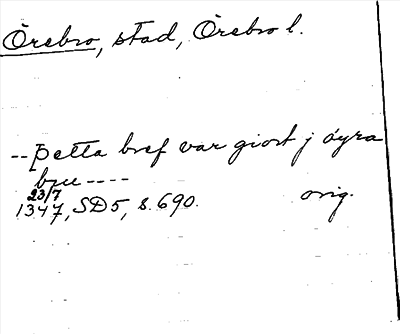 Örebro, stad, Örebro l.
-- þetta bref var giort j öyra
bru ----
23/7
1347, SD5, s. 690. orig.